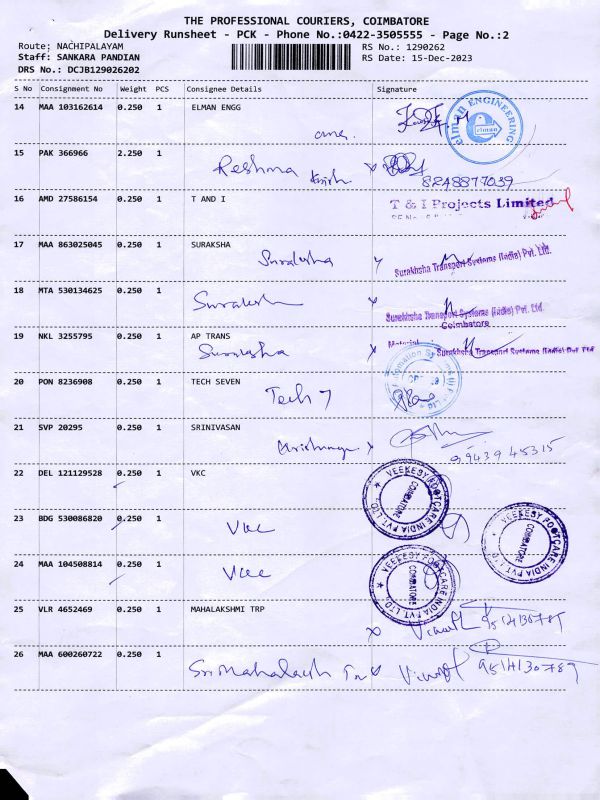 THE PROFESSIONAL COURIERS, COIMBATORE
Delivery Runsheet - PCK - Phone No.:0422-3505555 - Page No.:2
Route: NACHIPALAYAM
RS No.: 1290262
Staff: SANKARA PANDIAN
RS Date: 15-Dec-2023
DRS No.: DCJB129026202
S No Consignment No Weight PCS Consignee Details Signature
14 MAA 103162614 0.250 1 ELMAN ENGG
elman ENGINEERING
elman
15 PAK 366966 2.250 1
Reshma
8248877039
16 AMD 27586154 0.250 1 T AND I
T & I Projects Limited
17 MAA 863025045 0.250 1 SURAKSHA
Suraksha
Surakhsha Transport Systems (India) Pvt. Ltd.
18 MTA 530134625 0.250 1
Suraksha
Surakhsha Transport Systems (India) Pvt. Ltd.
Coimbatore
19 NKL 3255795 0.250 1 AP TRANS
Suraksha
Surakhsha Transport Systems (India) Pvt Ltd
20 PON 8236908 0.250 1 TECH SEVEN
Tech 7
21 SVP 20295 0.250 1 SRINIVASAN
9943945315
22 DEL 121129528 0.250 1 VKC
VEEKESY FOOTCARE INDIA PVT LTD
COIMBATORE
23 BDG 530086820 0.250 1
Vkc
VEEKESY FOOTCARE INDIA PVT LTD
COIMBATORE
24 MAA 104508814 0.250 1
Vkc
VEEKESY FOOTCARE INDIA PVT LTD
COIMBATORE
25 VLR 4652469 0.250 1 MAHALAKSHMI TRP
9514130789
26 MAA 600260722 0.250 1
Sri Mahalaksh
9514130789